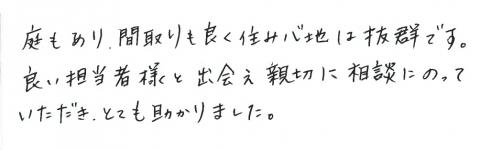 庭もあり、間取りも良く住み心地は抜群です。
良い担当者様と出会え親切に相談にのって
いただき、とても助かりました。